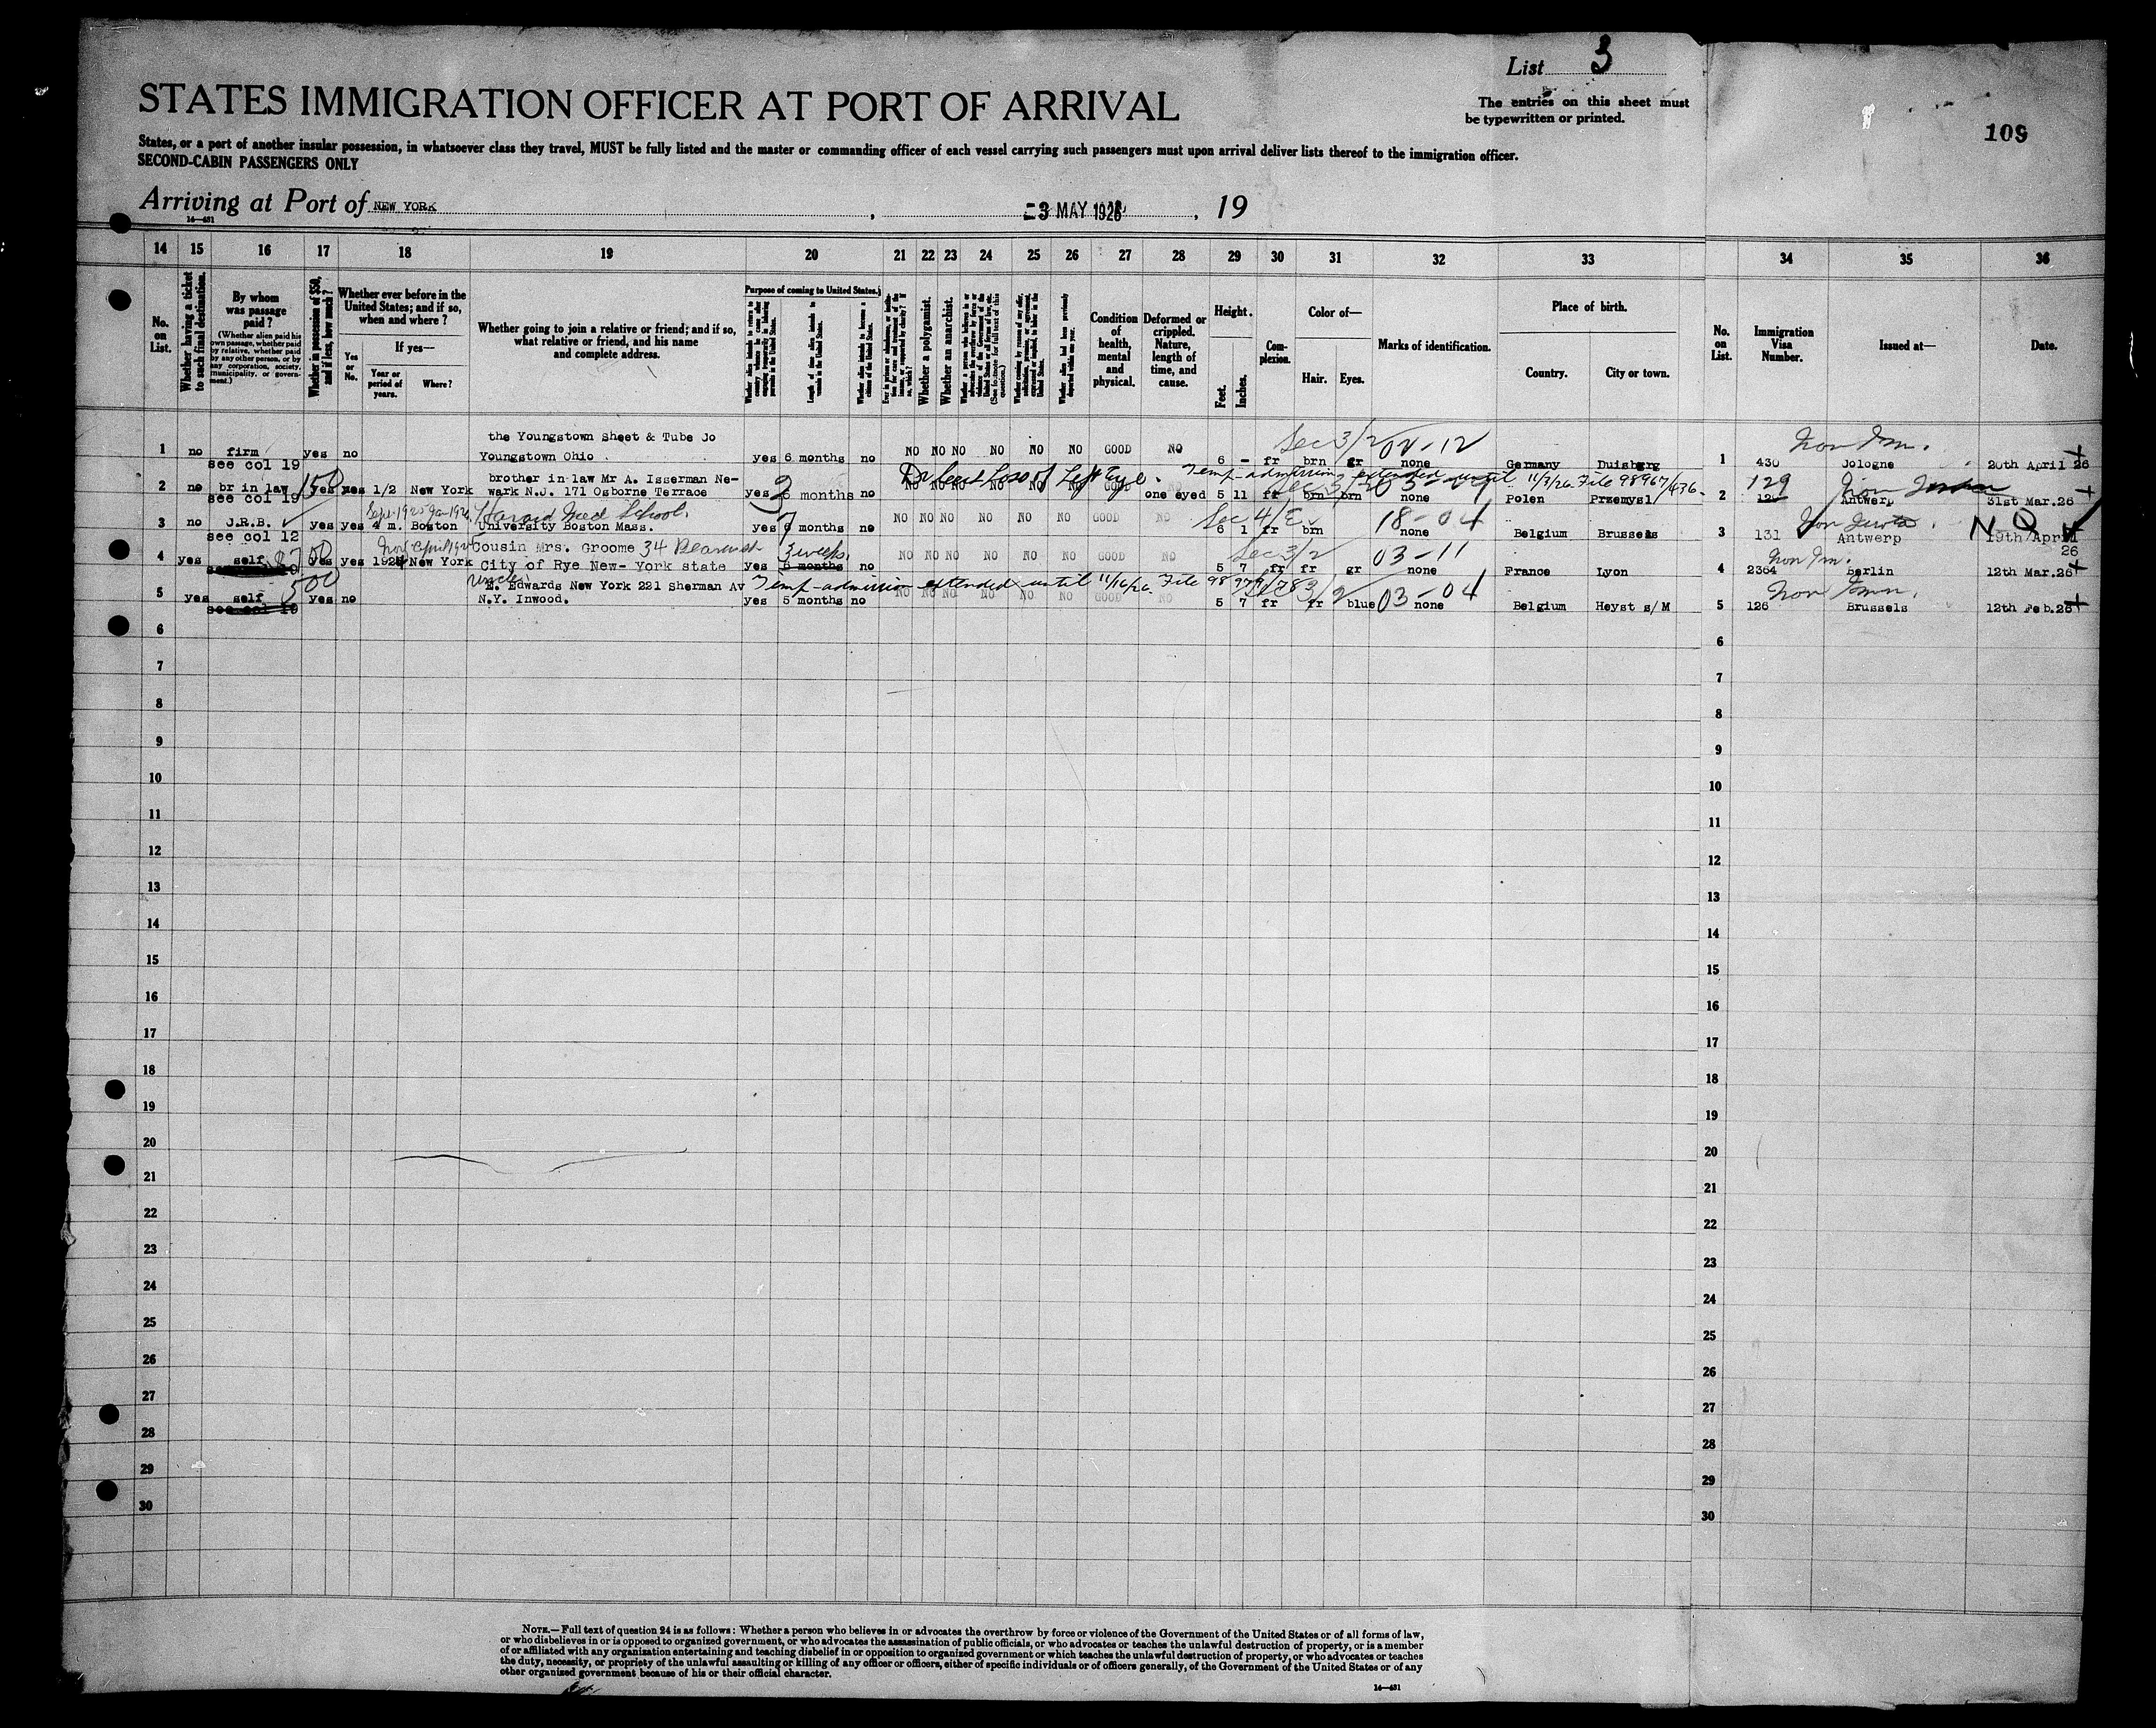 List 3
STATES IMMIGRATION OFFICER AT PORT OF ARRIVAL
The entries on this sheet must
be typewritten or printed.
109
States, or a port of another insular possession, in whatsoever class they travel, MUST be fully listed and the master or commanding officer of each vessel carrying such passengers must upon arrival deliver lists thereof to the immigration officer.
SECOND-CABIN PASSENGERS ONLY
Arriving at Port of NEW YORK, 3 MAY 1926, 19
16—481
14 15 16 17 18 19 20 21 22 23 24 25 26 27 28 29 30 31 32 33 34 35 36
No. on List.
Whether having a ticket to such final destination.
By whom was passage paid?
(Whether alien paid his own passage, whether paid by relative, whether paid by any other person, or by any corporation, society, municipality, or government.)
Whether in possession of $50, and if less, how much?
Whether ever before in the United States; and if so, when and where?
Yes or No.
If yes—
Year or period of years.
Where?
Whether going to join a relative or friend; and if so, what relative or friend, and his name and complete address.
Purpose of coming to United States.
Length of time alien intends to remain in the United States.
Whether alien intends to become a citizen of the United States.
Whether a polygamist.
Whether an anarchist.
Condition of health, mental and physical.
Deformed or crippled. Nature, length of time, and cause.
Height.
Feet.
Inches.
Complexion.
Color of—
Hair.
Eyes.
Marks of identification.
Place of birth.
Country.
City or town.
No. on List.
Immigration Visa Number.
Issued at—
Date.
the Youngstown Sheet & Tube Jo
Sec 3/2 04-12
Non Im.
1 no firm yes no Youngstown Ohio yes 6 months no NO NO NO NO NO NO GOOD NO 6 - fr brn gr none Germany Duisberg 1 430 Jologne 20th April 26
see col 19
brother in law Mr A. Isserman Ne-
Dr Cert Loss of Left Eye. Temp-admission extended until 11/3/26. File 98967/636.
2 no br in law 150 yes yes 1/2 New York wark N.J. 171 Osborne Terrace yes 6 months no one eyed 5 11 fr brn brn none Polen Przemysl 2 129 Antwerp 31st Mar.26
see col 19
Sept-1925 Jan-1926 Harvard Med School.
Sec 4/E 18-04
N Q
3 no J.R.B. yes yes 4 m. Boston University Boston Mass. yes 6 months no NO NO NO NO NO NO GOOD NO 6 1 fr brn none Belgium Brussels 3 131 Antwerp 19th April 26
see col 12
cousin Mrs. Groome 34
3 weeks
Sec 3/2 03-11
Non Im.
4 yes self yes yes 192 New York City of Rye New- York state yes 6 months no NO NO NO NO NO NO GOOD NO 5 7 fr fr gr none France Lyon 4 2364 Berlin 12th Mar.26
uncle
500 E. Edwards New York 221 Sherman Av Temp-admission extended until 11/16/26. File
03-04
Non Imm.
5 yes self yes no N.Y. Inwood. yes 5 months no NO NO NO NO NO NO GOOD NO 5 7 fr fr blue none Belgium Heyst s/M 5 126 Brussels 12th Feb.26
see col 19
6 6
7 7
8 8
9 9
10 10
11 11
12 12
13 13
14 14
15 15
16 16
17 17
18 18
19 19
20 20
21 21
22 22
23 23
24 24
25 25
26 26
27 27
28 28
29 29
30 30
NOTE.—Full text of question 24 is as follows: Whether a person who believes in or advocates the overthrow by force or violence of the Government of the United States or of all forms of law,
or who disbelieves in or is opposed to organized government, or who advocates the assassination of public officials, or who advocates or teaches the unlawful destruction of property, or is a member
of or affiliated with any organization entertaining and teaching disbelief in or opposition to organized government or which teaches the unlawful destruction of property, or who advocates or teaches
the duty, necessity, or propriety of the unlawful assaulting or killing of any officer or officers, either of specific individuals or of officers generally, of the Government of the United States or of any
other organized government because of his or their official character.
14—481